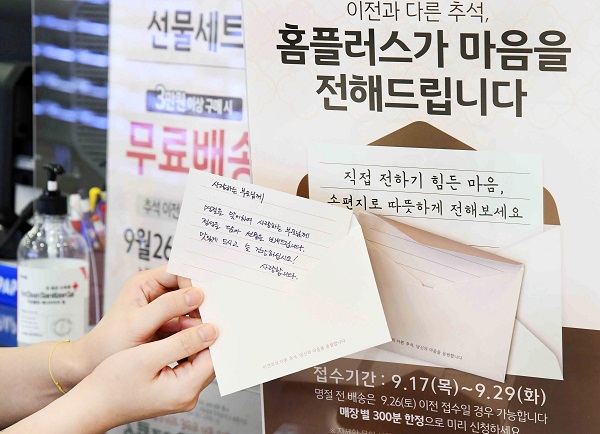 이전과 다른 추석,
홈플러스가 마음을
전해드립니다
선물세트
3만원 이상 구매 시
무료배송
추석 이전
9월 26
직접 전하기 힘든 마음,
손편지로 따뜻하게 전해보세요
사랑하는 부모님께
명절을 맞이하여 사랑하는 부모님께
정성을 담아 선물을 보내드립니다.
맛있게 드시고 늘 건강하십시오!
사랑합니다.
접수기간 : 9.17(목)~9.29(화)
명절 전 배송은 9.26(토) 이전 접수일 경우 가능합니다
매장별 300분 한정으로 미리 신청하세요